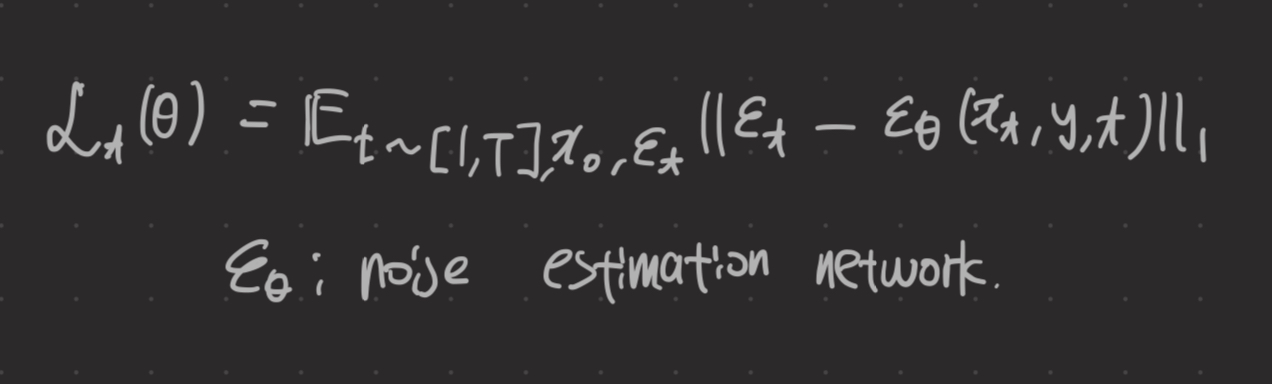 ℒₜ(θ) = 𝔼_{t~[1,T],x₀,εₜ} ||εₜ − ε_θ(xₜ,y,t)||₁
ε_θ : noise estimation network.